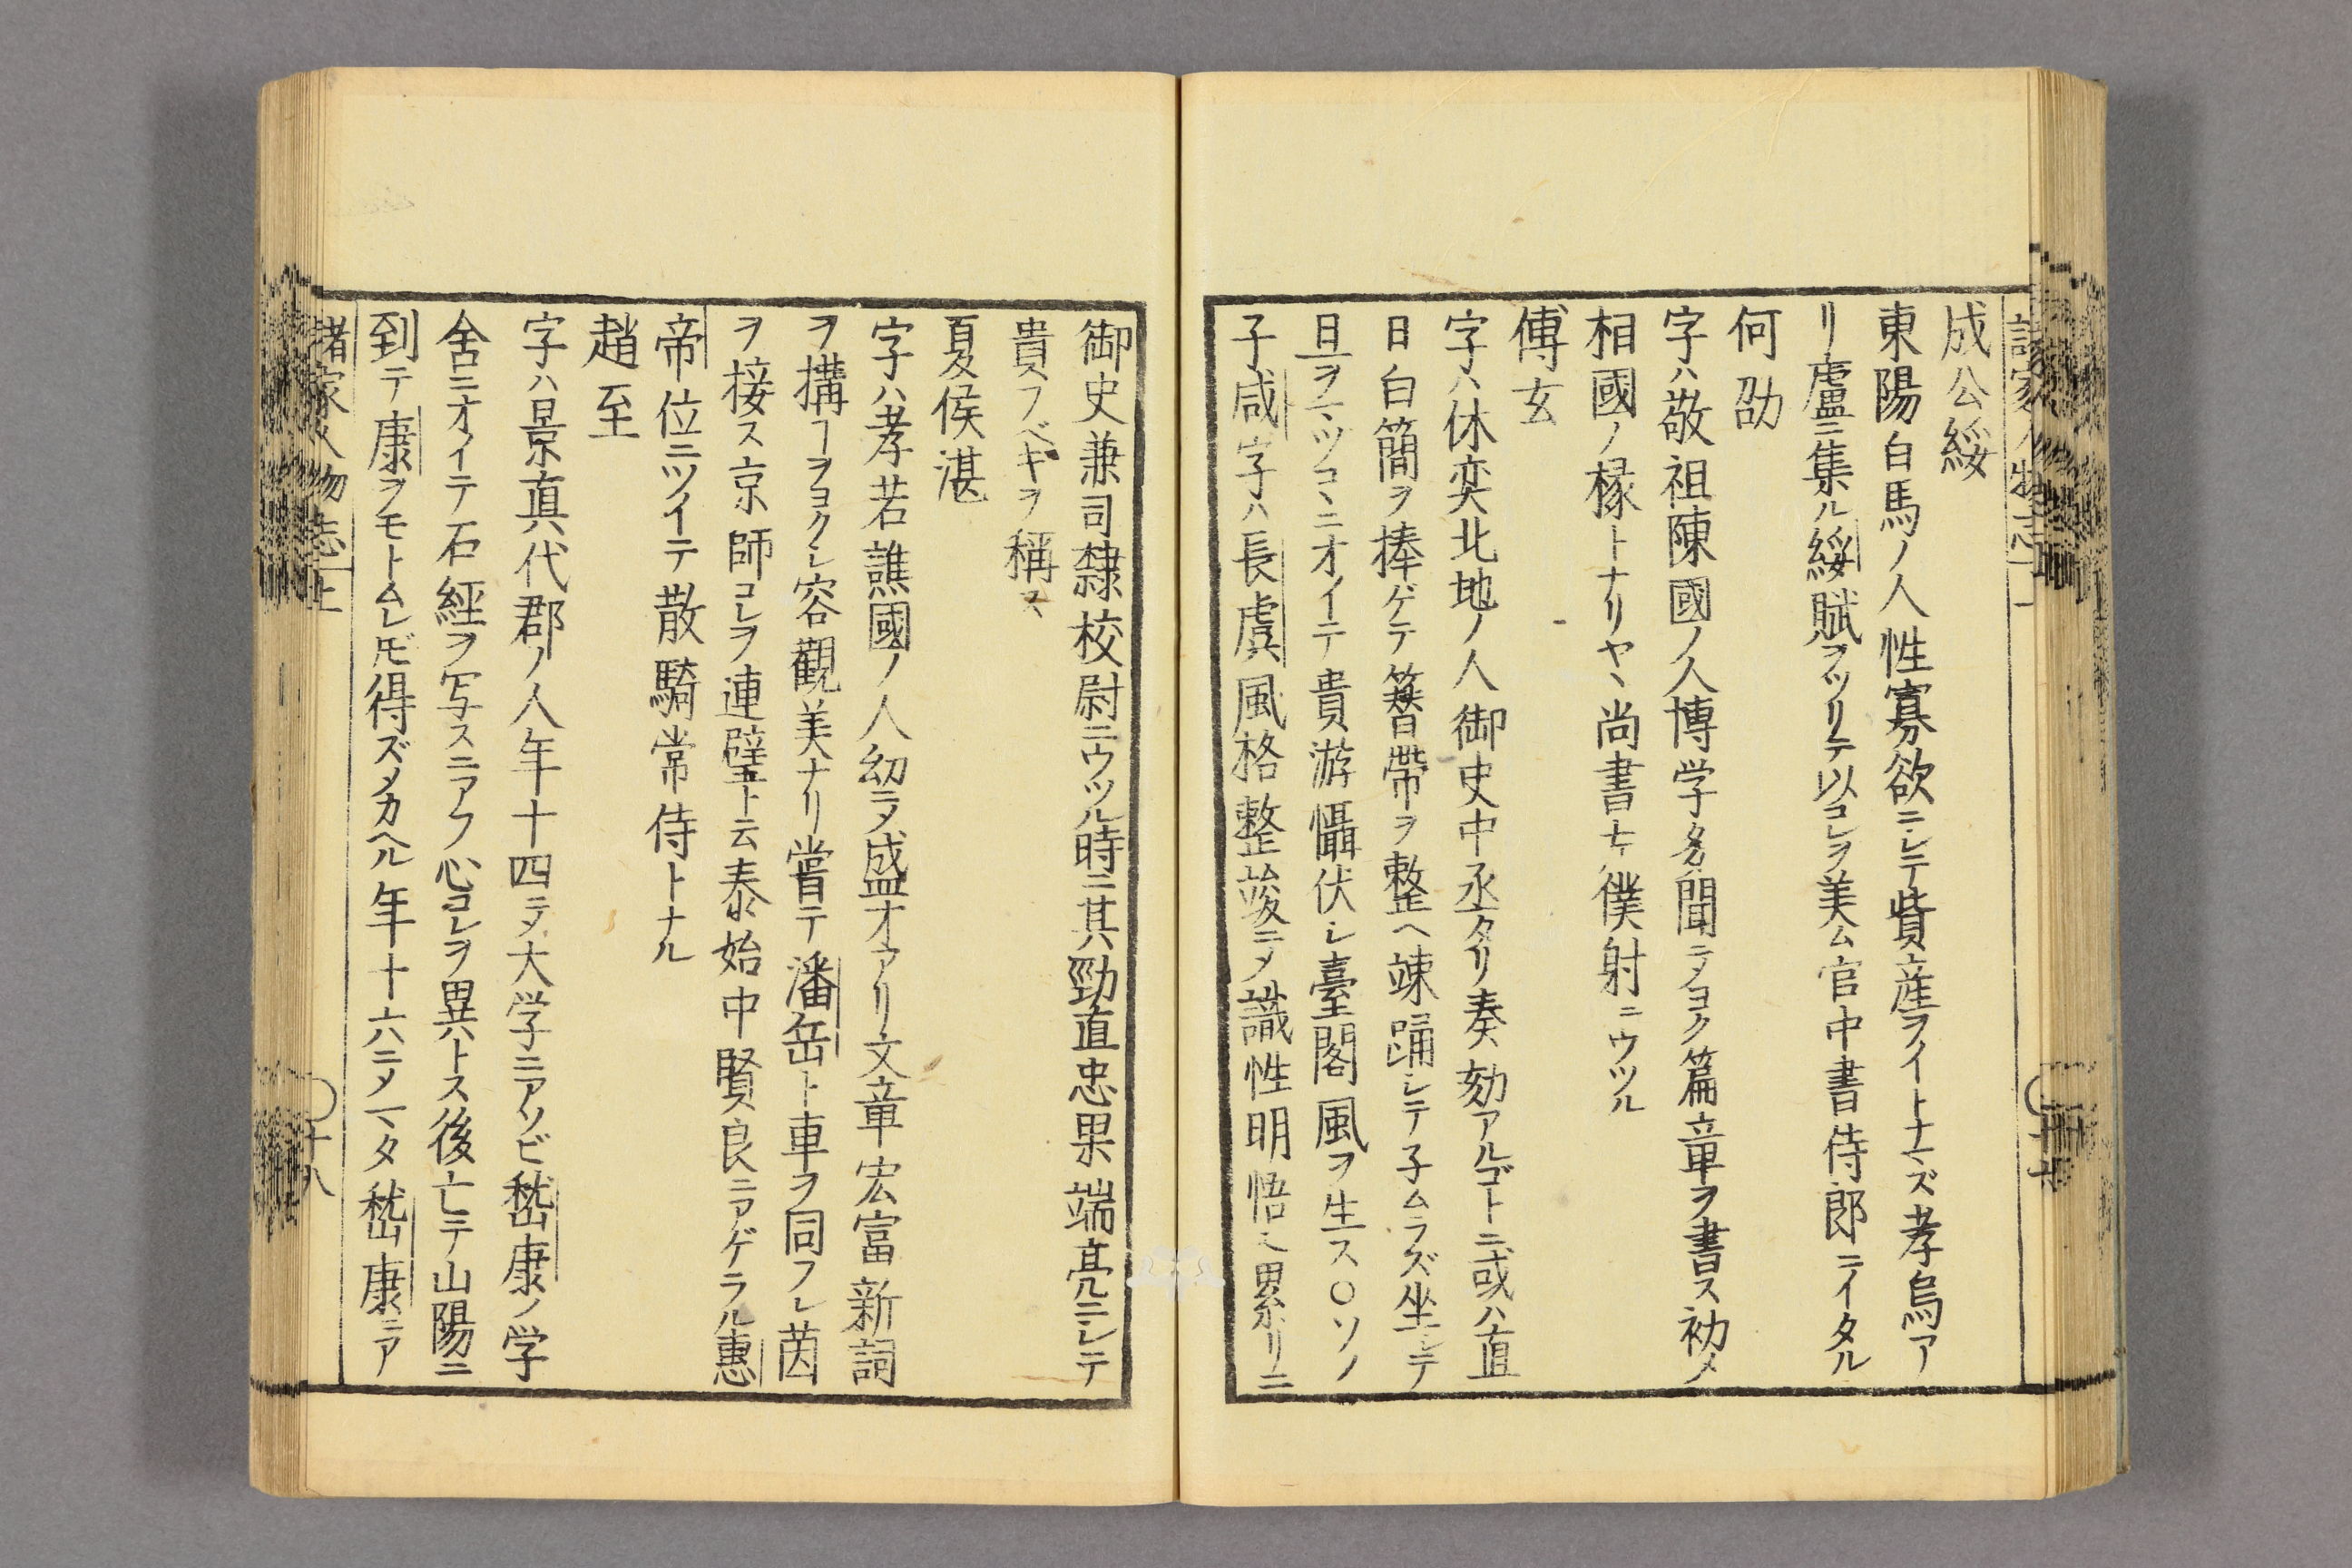 成公綏
東陽白馬ノ人性寡欲ニシテ貲産ヲイトナマズ孝烏ア
リ廬ニ集ル綏賦ヲツクリテ以コレヲ美ム官中書侍郎ニイタル
何劭
字ハ敬祖陳國ノ人博学多聞ニメヨク篇章ヲ書ス初メ
相國ノ掾トナリヤヽ尚書左僕射ニウツル
傅玄
字ハ休奕北地ノ人御史中丞タリ奏劾アルゴトニ或ハ直
日白簡ヲ捧ゲテ簪帶ヲ整ヘ竦踊シテ子ムラズ坐シテ
旦ヲマツコヽニオイテ貴游懾伏シ臺閣風ヲ生ス〇ソノ
子咸字ハ長虞風格整竣ニメ識性明悟也累リニ
御史兼司隸校尉ニウツル時ニ其勁直忠果端亮ニシテ
貴フベキヲ稱ス
夏侯湛
字ハ孝若譙國ノ人幼ニメ盛才アリ文章宏富新詞
ヲ搆ヿヲヨクシ容觀美ナリ嘗テ潘岳ト車ヲ同フシ茵
ヲ接ス京師コレヲ連璧ト云泰始中賢良ニアゲラル惠
帝位ニツイテ散騎常侍トナル
趙至
字ハ景真代郡ノ人年十四ニメ大学ニアソビ嵇康ノ学
舍ニオイテ石經ヲ写スニアフ心コレヲ異トス後亡テ山陽ニ
到テ康ヲモトムレ𪜈得ズメカヘル年十六ニメマタ嵇康ニア
諸家人物志上
〇十八